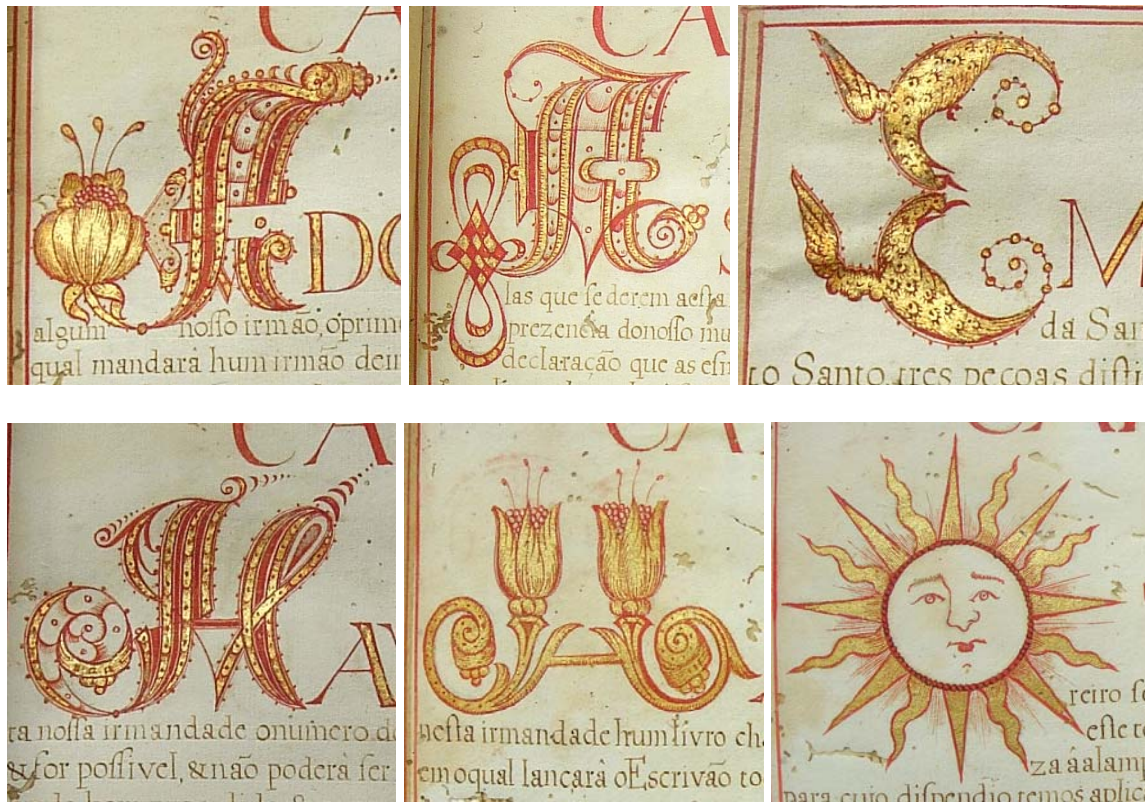 CA
A DO
algum nosso irmão, oprim
qual mandarà hum irmão dei
CA
A S
las que se derem aesta
prezencia donosso mu
declaração que as esi
E M
da San
to Santo, tres pecoas disti
CA
H A
ta nossa irmandade onumero d
& for possivel, & não poderà ser
CA
H
nesta irmandade hum livro ch
em oqual lançarà o Escrivão to
CA
reiro
este
za áalam
para cujo dispendio temos aplic